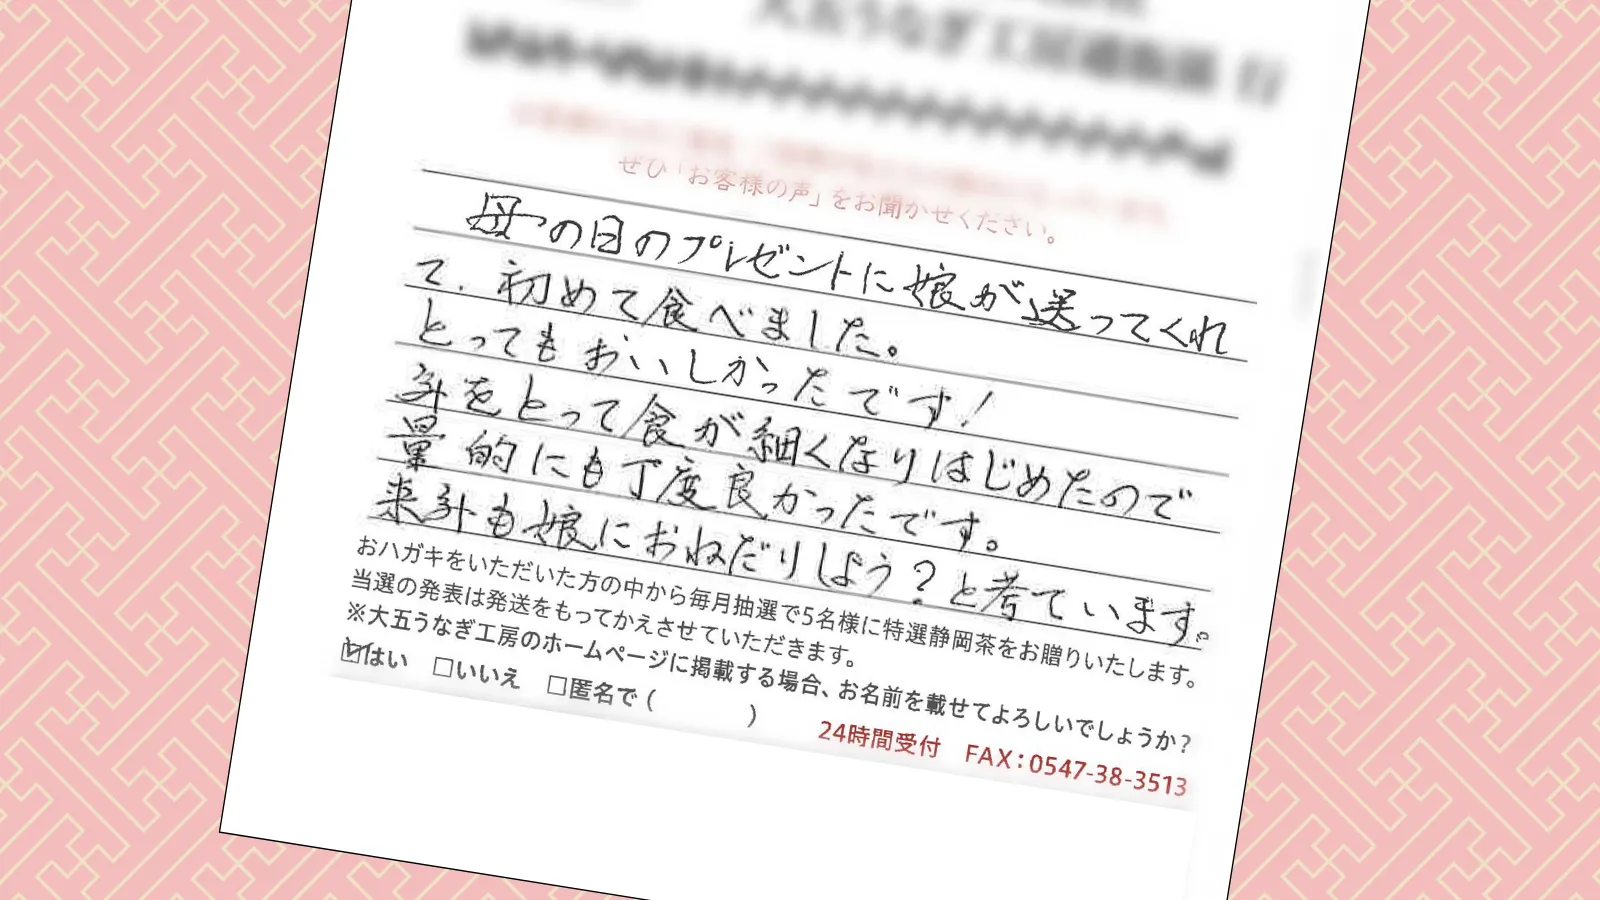 大五うなぎ工房通販部 行
ぜひ「お客様の声」をお聞かせください。
母の日のプレゼントに娘が送ってくれ
て.初めて食べました。
とってもおいしかったです!
年をとって食が細くなりはじめたので
量的にも丁度良かったです。
来年も娘におねだりしよう?と考ています。
おハガキをいただいた方の中から毎月抽選で5名様に特選静岡茶をお贈りいたします。
当選の発表は発送をもってかえさせていただきます。
※大五うなぎ工房のホームページに掲載する場合、お名前を載せてよろしいでしょうか?
☑はい □いいえ □匿名で( )
24時間受付 FAX:0547-38-3513